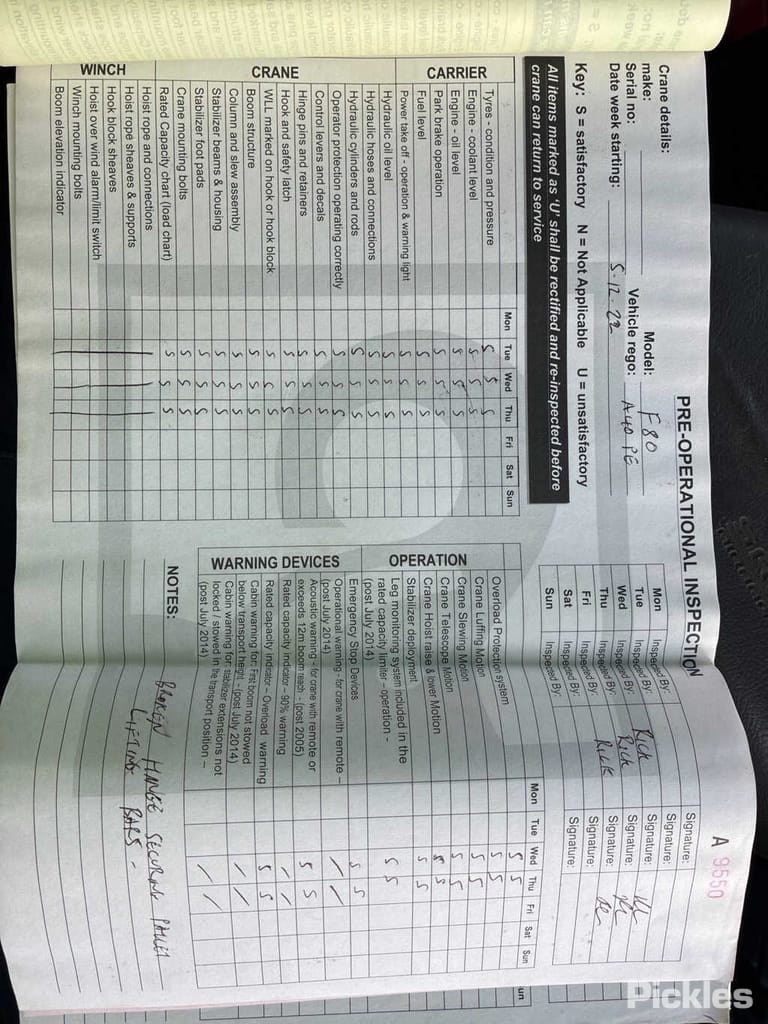 PRE-OPERATIONAL INSPECTION
A 9550
Crane details:
make: Model: F80
Serial no: Vehicle rego: A40 PE
Date week starting: 5.12.22
Key: S = satisfactory N = Not Applicable U = unsatisfactory
All items marked as 'U' shall be rectified and re-inspected before
crane can return to service
Mon Inspected By: Signature:
Tue Inspected By: Rick Signature:
Wed Inspected By: Rick Signature:
Thu Inspected By: Rick Signature:
Fri Inspected By: Signature:
Sat Inspected By: Signature:
Sun Inspected By: Signature:
Mon Tue Wed Thu Fri Sat Sun
CARRIER
Tyres - condition and pressure S S S
Engine - coolant level S S S
Engine - oil level S S S
Park brake operation S S S
Fuel level S S S
Power take off - operation & warning light S S S
CRANE
Hydraulic oil level S S S
Hydraulic hoses and connections S S S
Hydraulic cylinders and rods S S S
Operator protection operating correctly S S S
Control levers and decals S S S
Hinge pins and retainers S S S
Hook and safety latch S S S
WLL marked on hook or hook block S S S
Boom structure S S S
Column and slew assembly S S S
Stabilizer beams & housing S S S
Stabilizer foot pads S S S
Crane mounting bolts S S S
Rated Capacity chart (load chart) S S S
WINCH
Hoist rope and connections
Hoist rope sheaves & supports
Hook block sheaves
Hoist over wind alarm/limit switch
Winch mounting bolts
Boom elevation indicator
Mon Tue Wed Thu Fri Sat Sun
OPERATION
Overload Protection system S S
Crane Luffing Motion S S
Crane Slewing Motion S S
Crane Telescope Motion S S
Crane Hoist raise & lower Motion S S
Stabilizer deployment S S
Leg monitoring system included in the
rated capacity limiter – operation -
(post July 2014) S S
WARNING DEVICES
Emergency Stop Devices S S
Operational warning - for crane with remote –
(post July 2014) / /
Acoustic warning - for crane with remote or
exceeds 12m boom reach - (post 2005) S S
Rated capacity indicator – 90% warning / /
Rated capacity indicator – Overload warning S S
Cabin warning for: First boom not stowed
below transport height – (post July 2014) / /
Cabin warning for: stabilizer extensions not
locked / stowed in the transport position –
(post July 2014) / /
NOTES:
BROKEN HINGE SECURING
LIFTING BARS -
Pickles